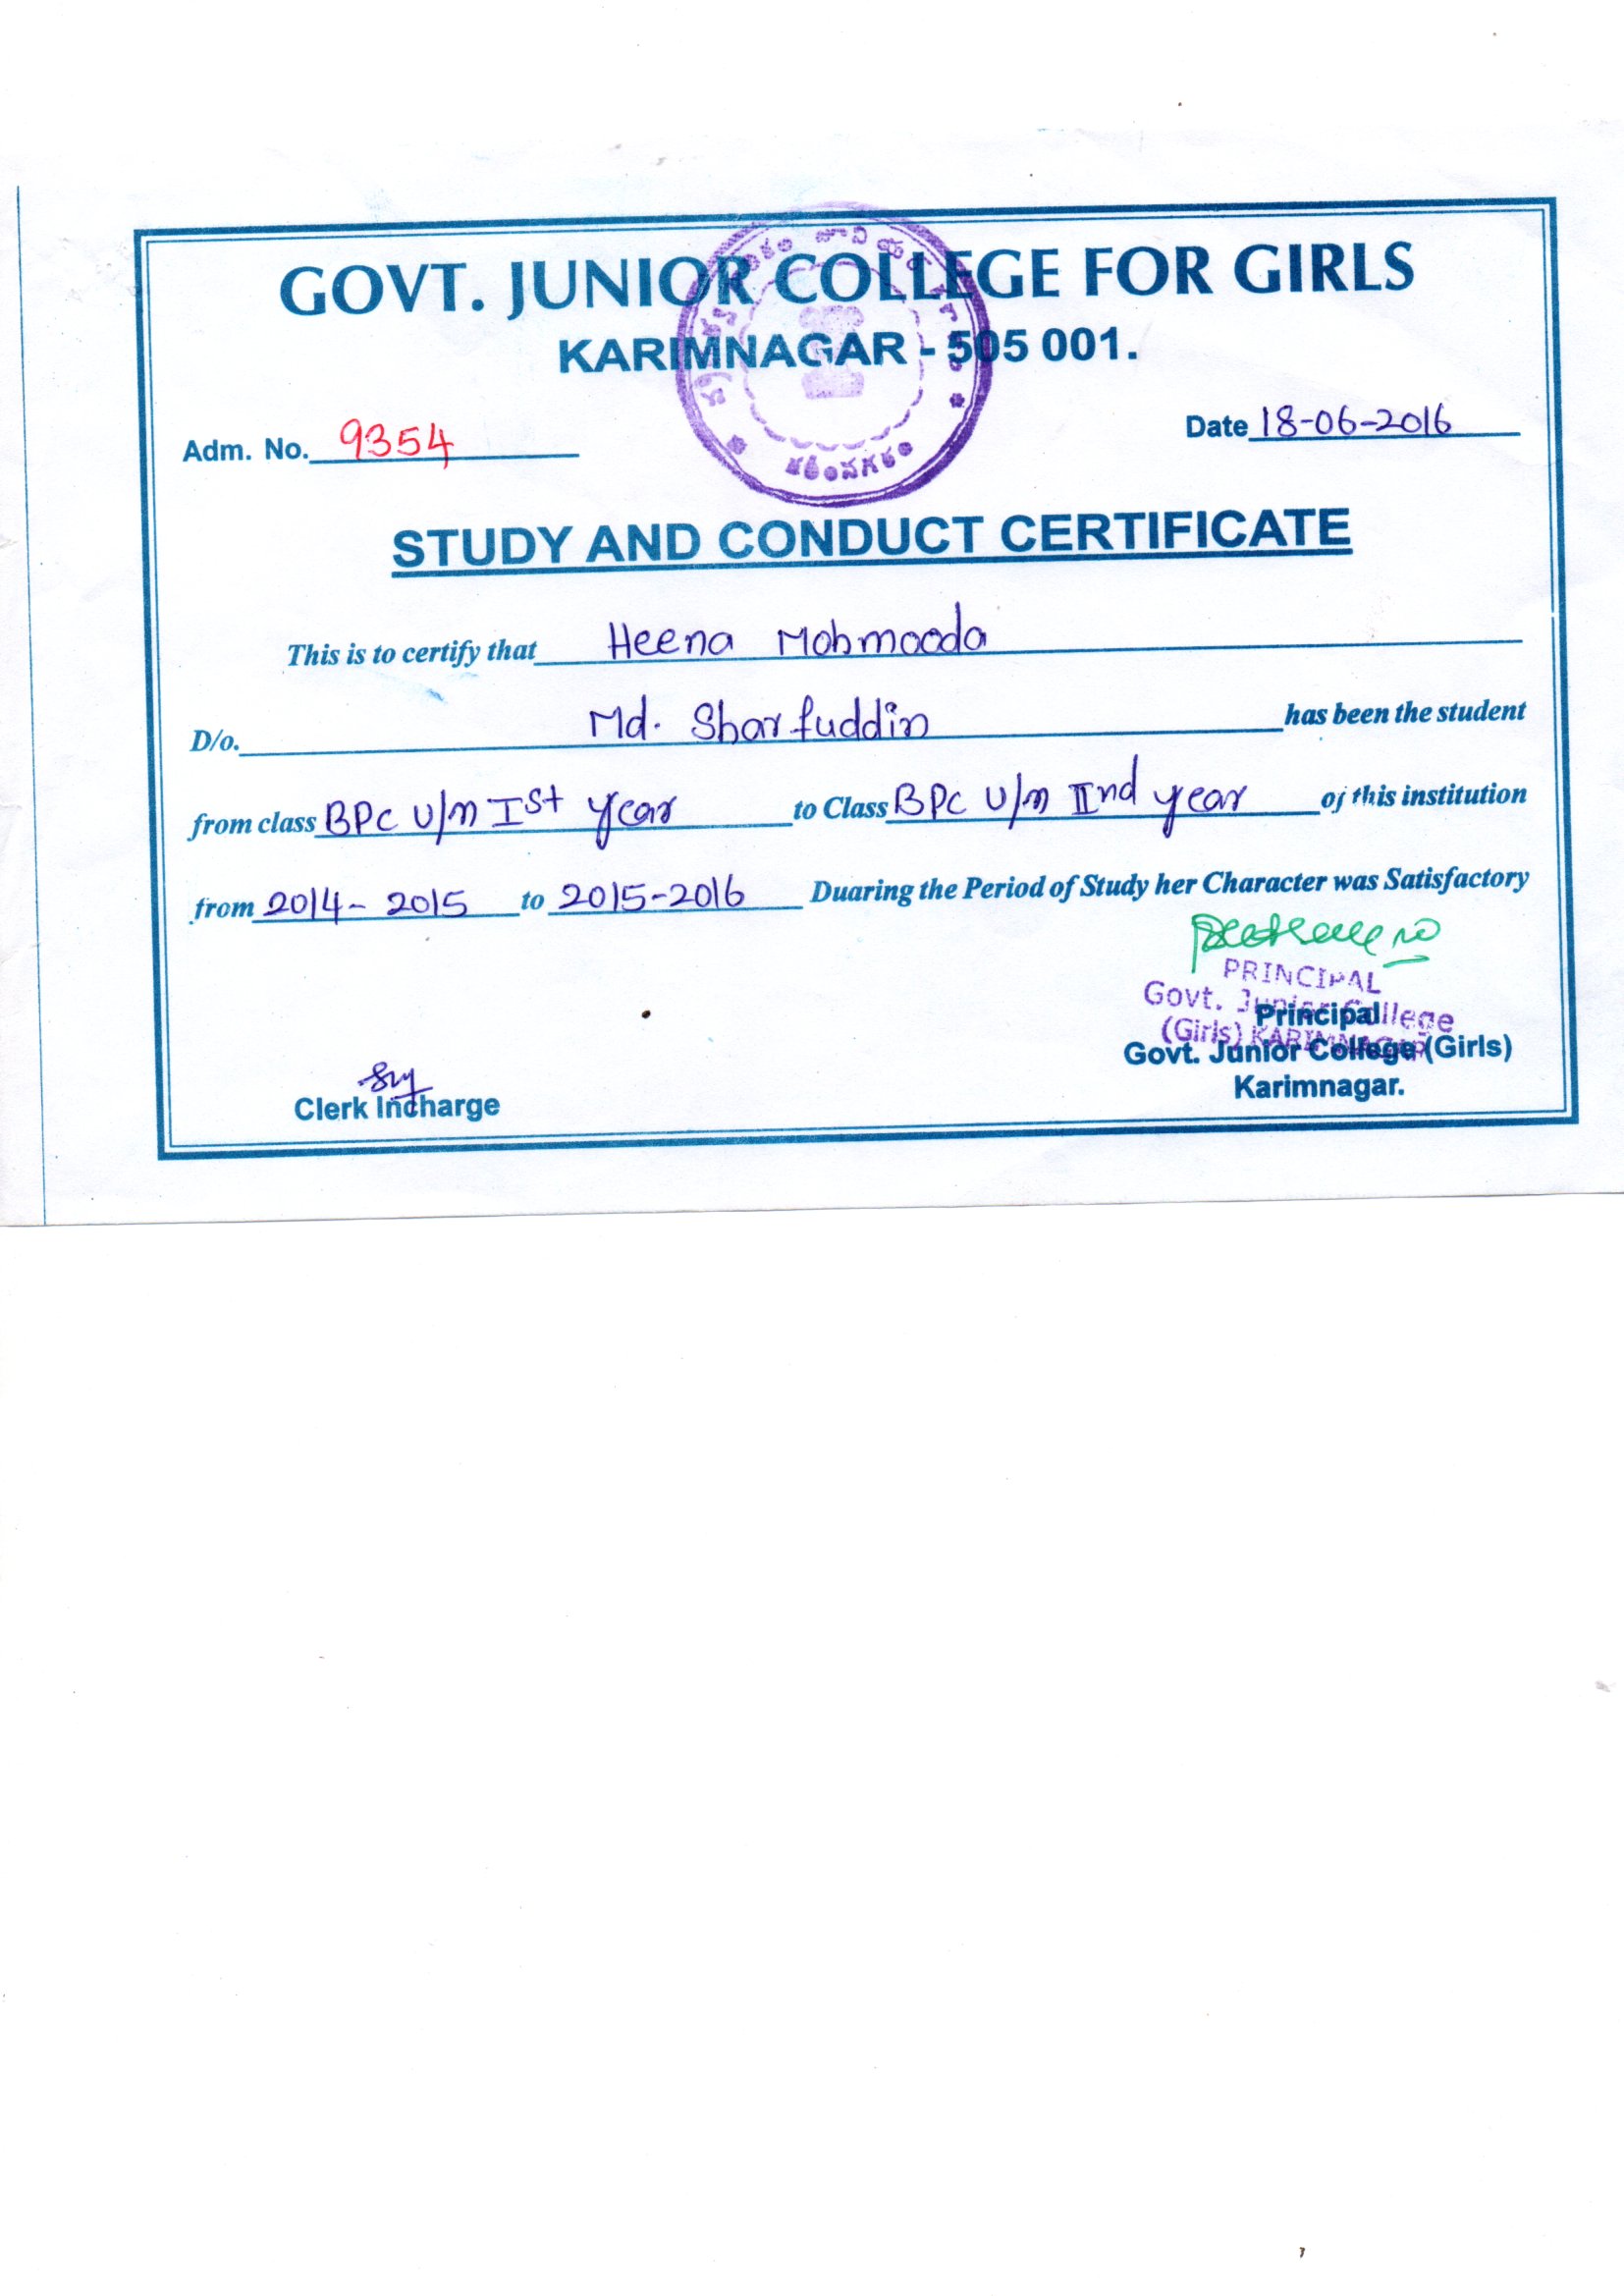 GOVT. JUNIOR COLLEGE FOR GIRLS
KARIMNAGAR - 505 001.
Adm. No. 9354
Date 18-06-2016
STUDY AND CONDUCT CERTIFICATE
This is to certify that Heena Mohmooda
D/o. Md. Sharfuddin has been the student
from class BPC U/M Ist year to Class BPC U/M IInd year of this institution
from 2014-2015 to 2015-2016 Duaring the Period of Study her Character was Satisfactory
PRINCIPAL
Govt. Junior College
(Girls) KARIMNAGAR
Principal
Govt. Junior College (Girls)
Karimnagar.
Clerk Incharge